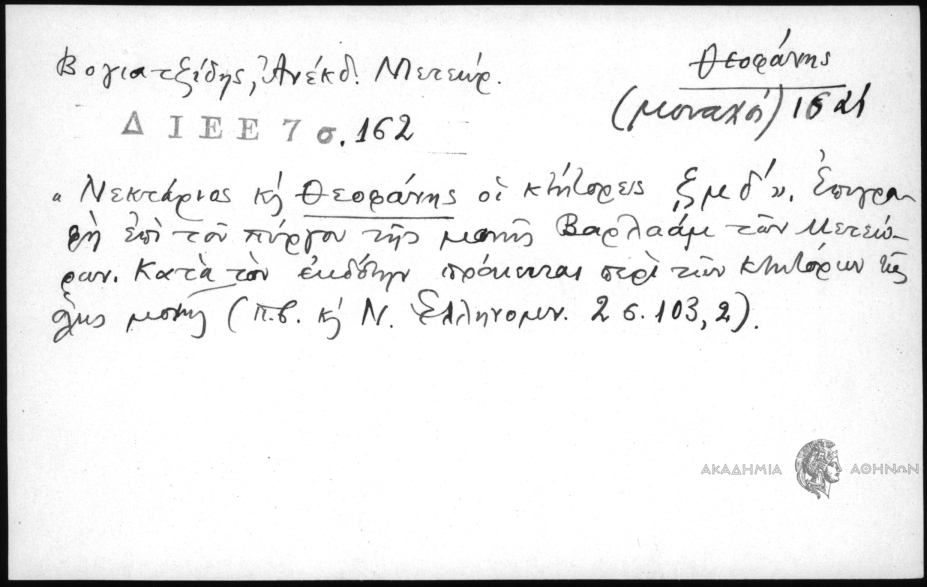 Βογιατζίδης, Ἀνέκδ. Μετεώρ.
Θεοφάνης
(μοναχός) 1521
ΔΙΕΕ 7 σ. 162
« Νεκτάριος κὴ Θεοφάνης οἱ κτήτορεις ζμδ́ ». Ἐπιγρα-
φὴ ἐπὶ τοῦ πύργου τῆς μονῆς Βαρλαὰμ τῶν Μετεώ-
ρων. Κατὰ τὸν ἐκδότην πρόκειται περὶ τῶν κτητόρων τῆς
ὅλης μονῆς (π.β. κὴ Ν. Ἑλληνομν. 2 σ. 103, 2).
ΑΚΑΔΗΜΙΑ ΑΘΗΝΩΝ